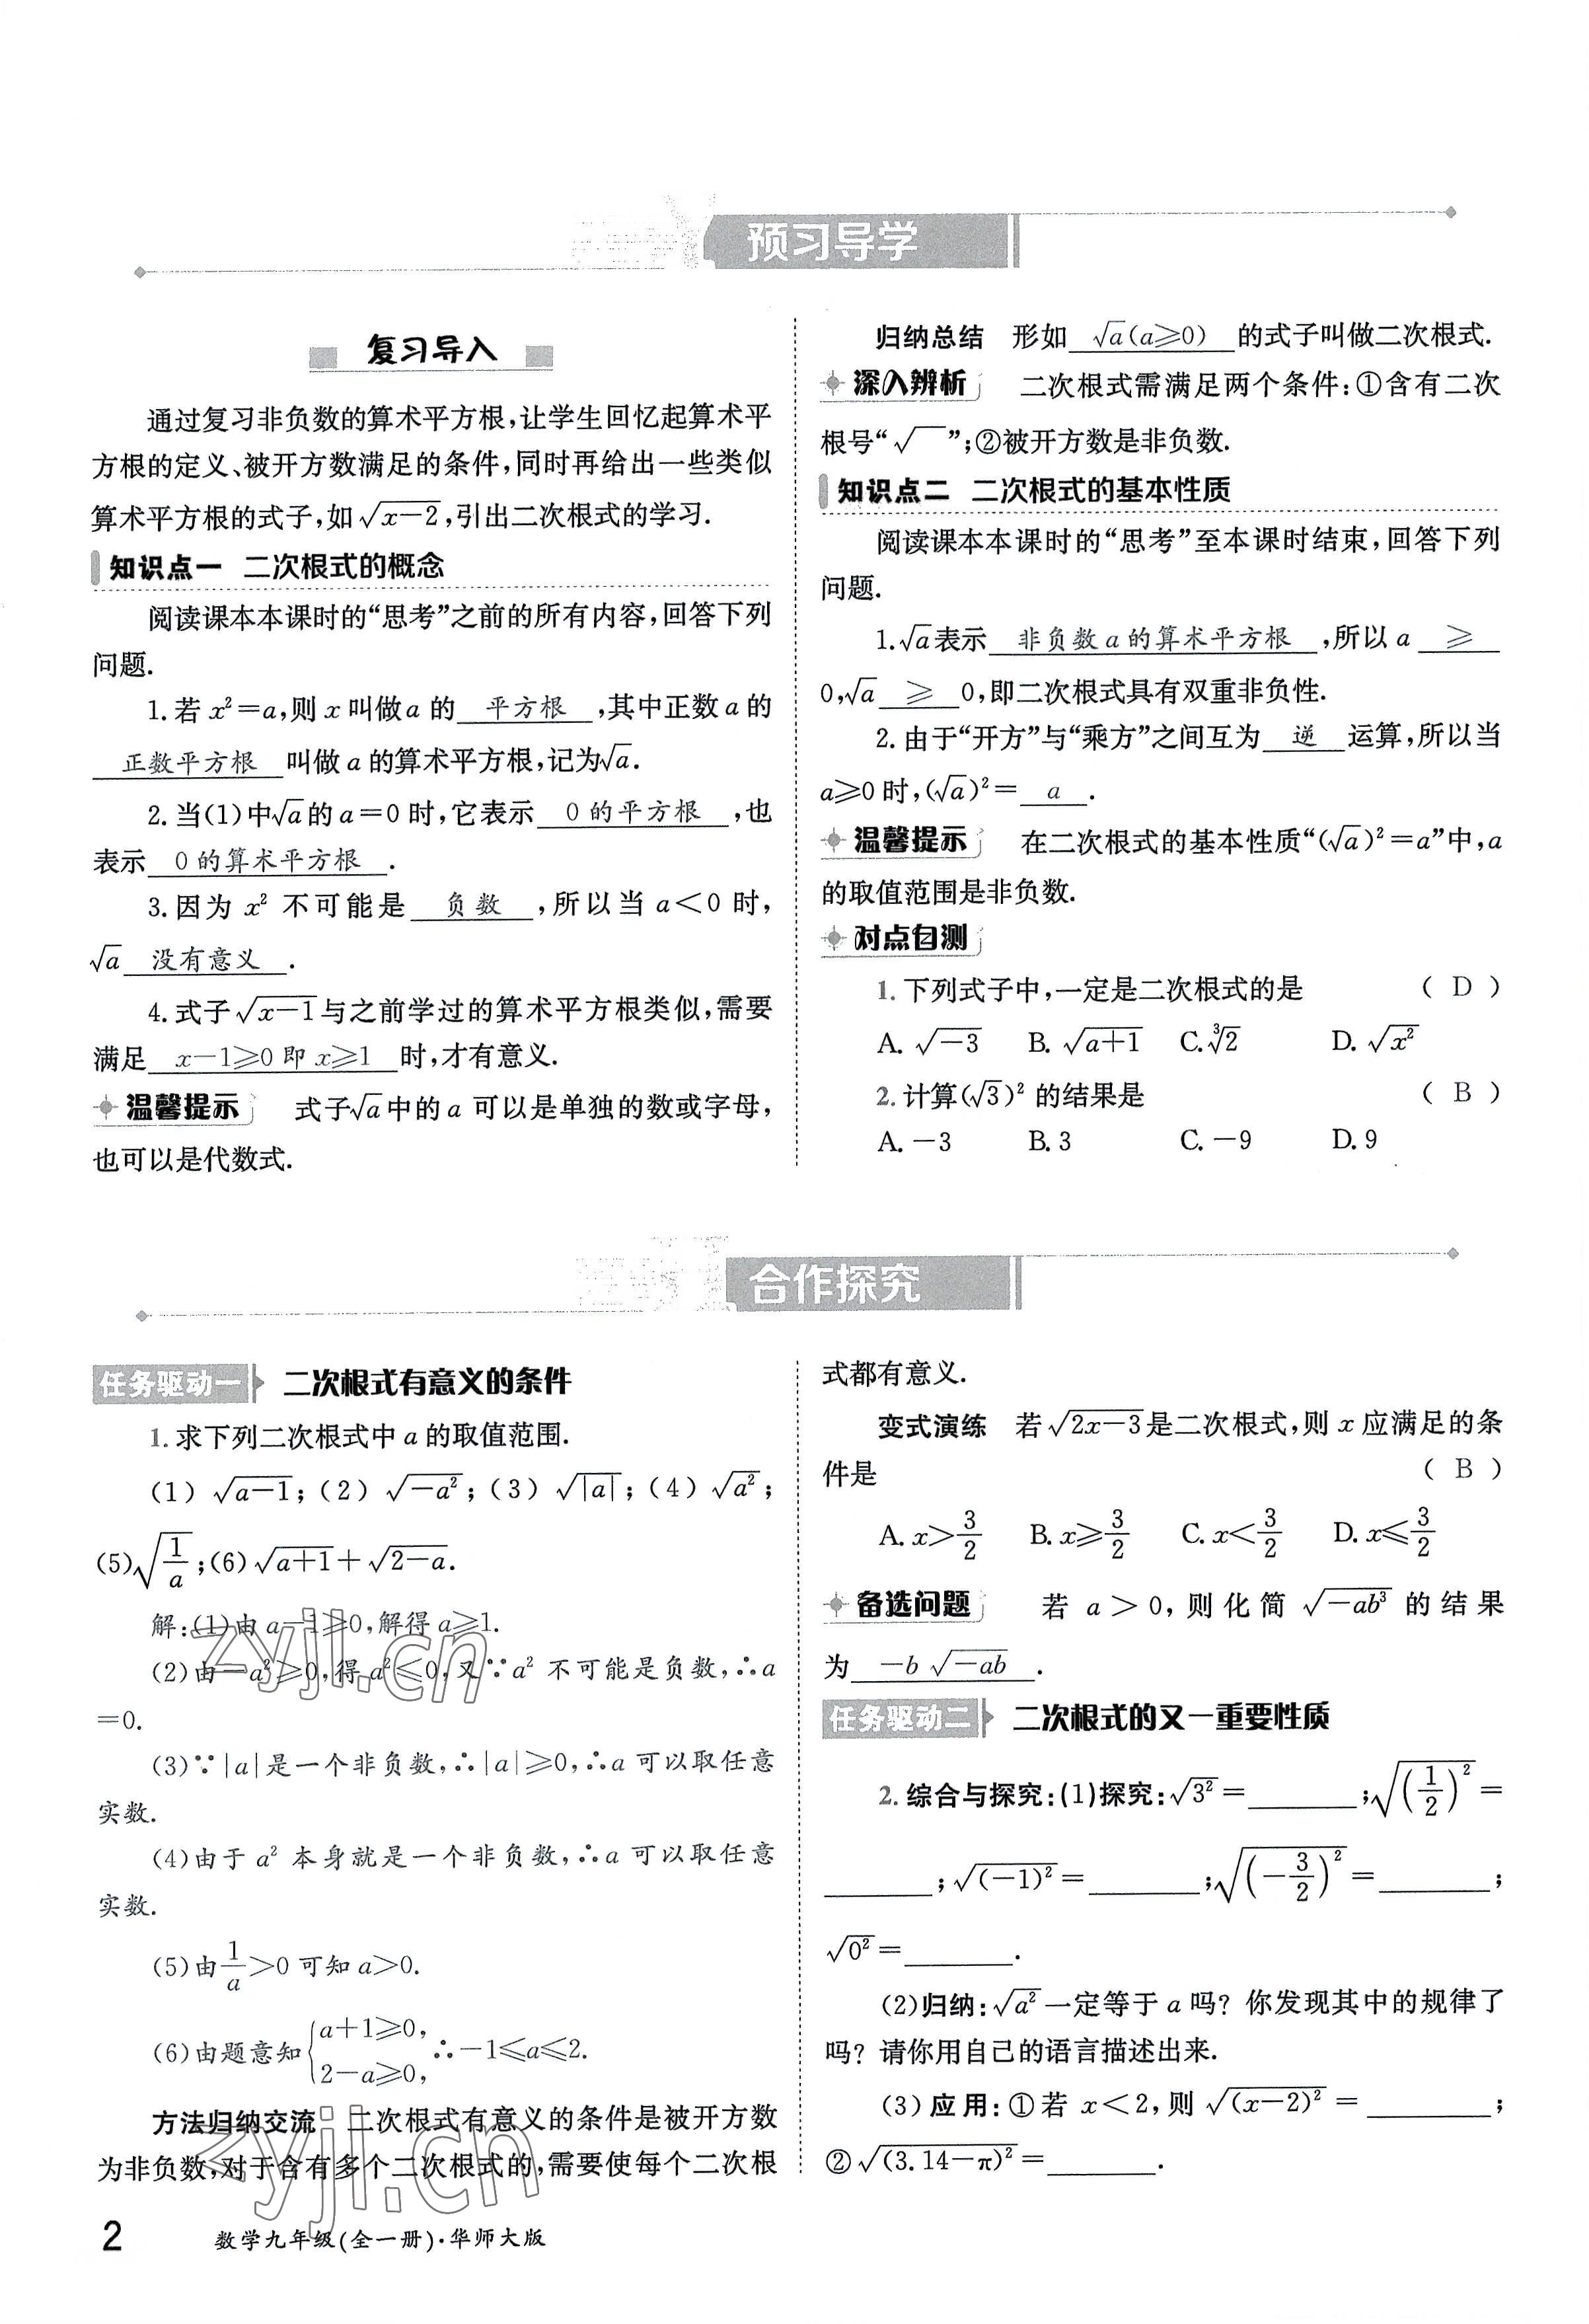 预习导学
复习导入
通过复习非负数的算术平方根,让学生回忆起算术平
方根的定义、被开方数满足的条件,同时再给出一些类似
算术平方根的式子,如√(x-2),引出二次根式的学习.
知识点一 二次根式的概念
阅读课本本课时的“思考”之前的所有内容,回答下列
问题.
1.若 x²=a,则 x 叫做a 的 平方根 ,其中正数 a 的
正数平方根 叫做 a 的算术平方根,记为√a.
2.当(1)中√a的 a=0 时,它表示 0 的平方根 ,也
表示 0 的算术平方根 .
3.因为 x² 不可能是 负数 ,所以当 a<0 时,
√a 没有意义 .
4.式子√(x-1)与之前学过的算术平方根类似,需要
满足 x-1⩾0 即 x⩾1 时,才有意义.
温馨提示 式子√a中的 a 可以是单独的数或字母,
也可以是代数式.
归纳总结 形如 √a(a⩾0) 的式子叫做二次根式.
深入辨析 二次根式需满足两个条件:①含有二次
根号“√ ”;②被开方数是非负数.
知识点二 二次根式的基本性质
阅读课本本课时的“思考”至本课时结束,回答下列
问题.
1.√a表示 非负数 a 的算术平方根 ,所以 a ⩾
0,√a ⩾ 0,即二次根式具有双重非负性.
2.由于“开方”与“乘方”之间互为 逆 运算,所以当
a⩾0 时,(√a)²= a .
温馨提示 在二次根式的基本性质“(√a)²=a”中,a
的取值范围是非负数.
对点自测
1.下列式子中,一定是二次根式的是 ( D )
A.√(-3) B.√(a+1) C.∛2 D.√(x²)
2.计算(√3)² 的结果是 ( B )
A.-3 B.3 C.-9 D.9
合作探究
任务驱动一 二次根式有意义的条件
1.求下列二次根式中 a 的取值范围.
(1) √(a-1);(2) √(-a²);(3) √|a|;(4) √(a²);
(5)√(1/a);(6)√(a+1)+√(2-a).
解:(1)由 a-1⩾0,解得 a⩾1.
(2)由-a²⩾0,得 a²⩽0,又∵a² 不可能是负数,∴a
=0.
(3)∵|a|是一个非负数,∴|a|⩾0,∴a 可以取任意
实数.
(4)由于 a² 本身就是一个非负数,∴a 可以取任意
实数.
(5)由1/a>0 可知 a>0.
(6)由题意知{a+1⩾0, 2-a⩾0, ∴-1⩽a⩽2.
方法归纳交流 二次根式有意义的条件是被开方数
为非负数,对于含有多个二次根式的,需要使每个二次根
式都有意义.
变式演练 若√(2x-3)是二次根式,则 x 应满足的条
件是 ( B )
A.x>3/2 B.x⩾3/2 C.x<3/2 D.x⩽3/2
备选问题 若 a>0,则化简 √(-ab³) 的结果
为 -b √(-ab) .
任务驱动二 二次根式的又一重要性质
2.综合与探究:(1)探究:√(3²)=______;√((1/2)²)=
______;√((-1)²)=______;√((-3/2)²)=______;
√(0²)=______.
(2)归纳:√(a²)一定等于 a 吗? 你发现其中的规律了
吗? 请你用自己的语言描述出来.
(3)应用:①若 x<2,则 √((x-2)²)=______;
②√((3.14-π)²)=______.
zyjl.cn
zyjl.cn
2 数学九年级(全一册)·华师大版